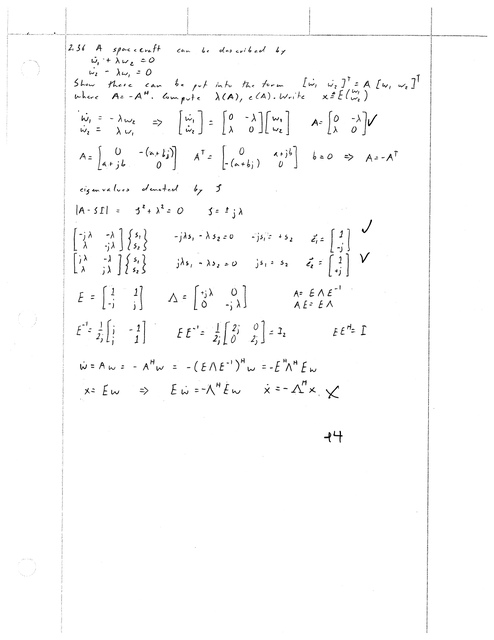 2.36 A spacecraft can be described by
ẇ₁ + λw₂ = 0
ẇ₂ - λw₁ = 0
Show these can be put into the form [ẇ₁ ẇ₂]ᵀ = A [w₁ w₂]ᵀ
where A = -Aᴴ. Compute λ(A), e(A). Write x = E(w₁ w₂)
ẇ₁ = -λw₂ ẇ₂ = λw₁ ⇒ [ẇ₁ ẇ₂] = [0 -λ; λ 0] [w₁ w₂] A = [0 -λ; λ 0] ✓
A = [0 -(a+bj); a+jb 0] Aᵀ = [0 a+jb; -(a+bj) 0] b=0 ⇒ A = -Aᵀ
eigenvalues denoted by S
|A - SI| = S² + λ² = 0 S = ± jλ
[-jλ -λ; λ -jλ] {s₁ s₂} -jλs₁ - λs₂ = 0 -js₁ = +s₂ e₁ = [1; -j] ✓
[jλ -λ; λ jλ] {s₁ s₂} jλs₁ - λs₂ = 0 js₁ = s₂ e₂ = [1; +j] ✓
E = [1 1; -j j] Λ = [+jλ 0; 0 -jλ] A = EΛE⁻¹ AE = EΛ
E⁻¹ = 1/2j [j -1; j 1] EE⁻¹ = 1/2j [2j 0; 0 2j] = I₂ EEᴴ = I
ẇ = Aw = -Aᴴw = -(EΛE⁻¹)ᴴw = -EᴴΛᴴEw
x = Ew ⇒ Eẇ = -ΛᴴEw ẋ = -Λᴴx ✗